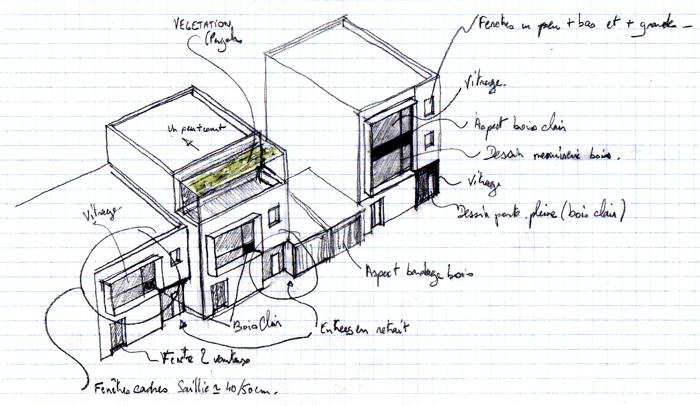 VEGETATION
Fenêtres un peu + bas et + grandes
Vitrage.
Un peu
Aspect bois clair
Dessin menuiserie bois.
Vitrage
Vitrage
Dessin porte pleine (bois clair)
Aspect bardage bois
Bois Clair
Entrées en retrait
Fenêtre 2 vantaux
Fenêtres cadres Saillie ≃ 40/50cm.